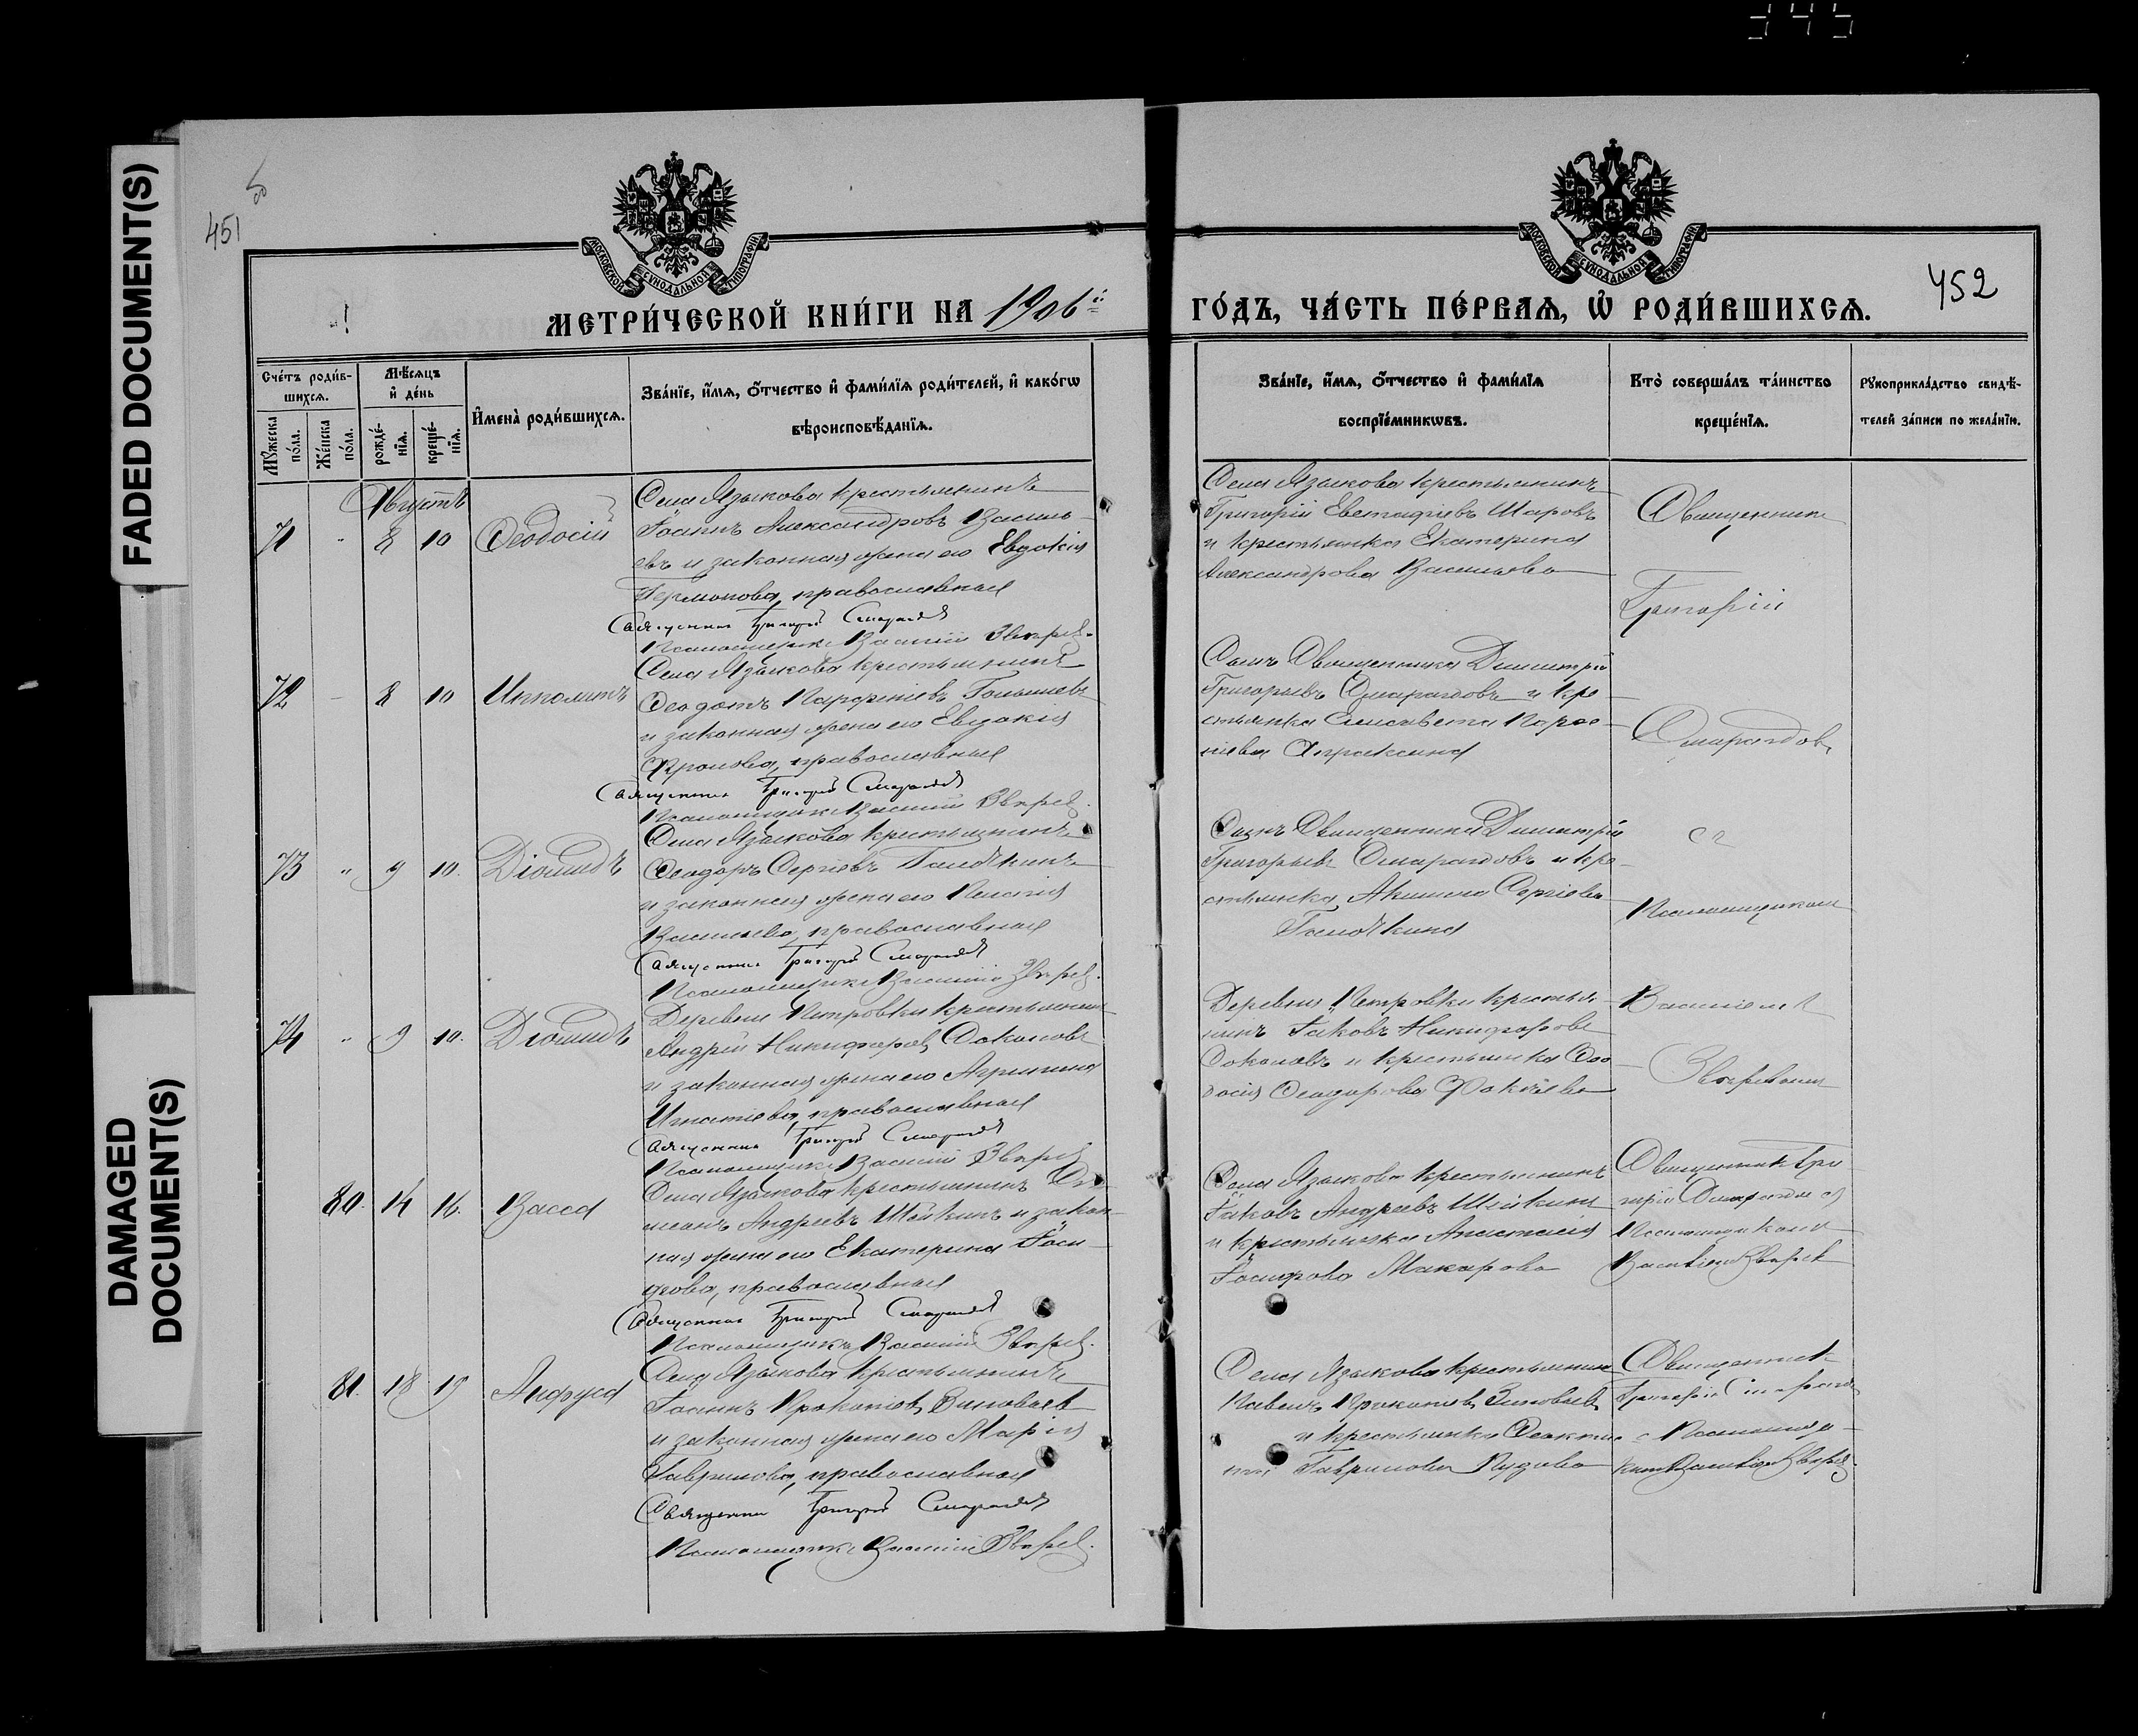 345
FADED DOCUMENT(S)
DAMAGED
DOCUMENT(S)
451
452
МОСКОВСКОЙ СѴНОДАЛЬНОЙ ТИПОГРАФІИ
МОСКОВСКОЙ СѴНОДАЛЬНОЙ ТИПОГРАФІИ
МЕТРИ́ЧЕСКОЙ КНИ́ГИ НА 1906й
ГО́ДЪ, ЧА́СТЬ ПЕ́РВАѦ, Ѡ҆ РОДИ́ВШИХСѦ.
Сче́тъ роди́в-
шихсѧ.
Мꙋ́жеска по́ла.
Же́нска по́ла.
Мѣ́сѧцъ
и҆ де́нь
рожде́-
нїѧ.
креще́-
нїѧ.
И҆мена̀ роди́вшихсѧ.
Зва́нїе, и҆́мѧ, ѻ҆́тчество и҆ фами́лїѧ роди́телей, и҆ како́гѡ
вѣроисповѣ́данїѧ.
Зва́нїе, и҆́мѧ, ѻ҆́тчество и҆ фами́лїѧ
воспрїе́мникѡвъ.
Кто̀ соверша́лъ та́инство
креще́нїѧ.
Рꙋкоприкла́дство свидѣ́-
телей за́писи по жела́нїю.
Августъ
71 " 8 10 Ѳеодосій
Села Языкова крестьянинъ
Іоаннъ Александровъ Василь-
евъ и законная жена его Евдокія
Гермонова, православныя
Священник Григорій Смарагдов
Псаломщикъ Василій Зверев.
Села Языкова крестьянинъ
Григорій Евстафіевъ Шаровъ
и крестьянка Екатерина
Александрова Васильева
Священник
Григорій
72 - 8 10 Ипполитъ
Села Языкова крестьянинъ
Ѳеодотъ Парфеніевъ Голышевъ
и законная жена его Евдокія
Фролова, православныя
Священник Григорій Смарагдов
Псаломщикъ Василій Зверев.
Сынъ Священника Димитрій
Григорьевъ Смарагдовъ и кре-
стьянка Елисавета
Апраксина
Смарагдовъ
73 " 9 10. Діомидъ
Села Языкова крестьянинъ
Ѳеодоръ Сергіевъ
и законная жена его Пелагія
Васильева, православныя
Священник Григорій Смарагдов
Псаломщикъ Василій Зверев.
Сынъ Священника Димитрій
Григорьевъ Смарагдовъ и кре-
стьянка Акилина Сергіева
съ
Псаломщикомъ
74 " 9 10. Діомидъ
Деревни Петровки крестьянинъ
Андрей Никифоров Соколовъ
и законная жена его Агрипина
Игнатіева, православныя
Священник Григорій Смарагдов
Псаломщикъ Василій Зверев
Деревни Петровки крестья-
нинъ Іаковъ Никифоровъ
Соколовъ и крестьянка Ѳео-
досія Ѳеодорова
Василіемъ
Зверевымъ
80. 14 16. Васса
Села Языкова крестьянинъ
Андреевъ Шейкинъ и закон-
ная жена его Екатерина Іоси-
фова, православныя
Священник Григорій Смарагдов
Псаломщикъ Василій Зверев.
Села Языкова крестьянинъ
Іаковъ Андреевъ Шейкинъ
и крестьянка Анастасія
Іосифова Макарова
Священник Гри-
горій Смарагдов съ
Псаломщикомъ
Василіем Зверев
81. 18 19 Анфуса
Села Языкова крестьянинъ
Іоаннъ Прокопіев Зиновьев
и законная жена его Марія
Гаврилова, православныя
Священник Григорій Смарагдов
Псаломщикъ Василій Зверев.
Села Языкова крестьянин
Павелъ Прокопіев Зиновьев
и крестьянка
Гаврилова
Священник
Григорій Смарагдов
с Псаломщи-
ком Василіем Зверев.